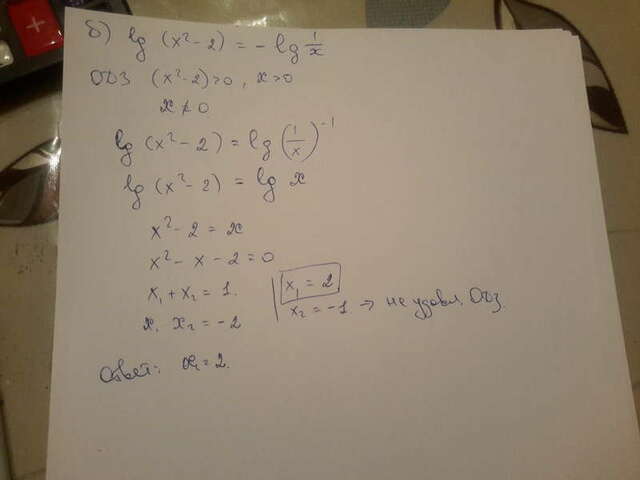 б) lg (x² - 2) = - lg 1/x
ОДЗ (x² - 2) > 0, x > 0
x ≠ 0
lg (x² - 2) = lg (1/x)⁻¹
lg (x² - 2) = lg x
x² - 2 = x
x² - x - 2 = 0
x₁ + x₂ = 1.
x₁ x₂ = -2
x₁ = 2
x₂ = -1 ⇒ не удовл. ОДЗ.
Ответ: x₁ = 2.